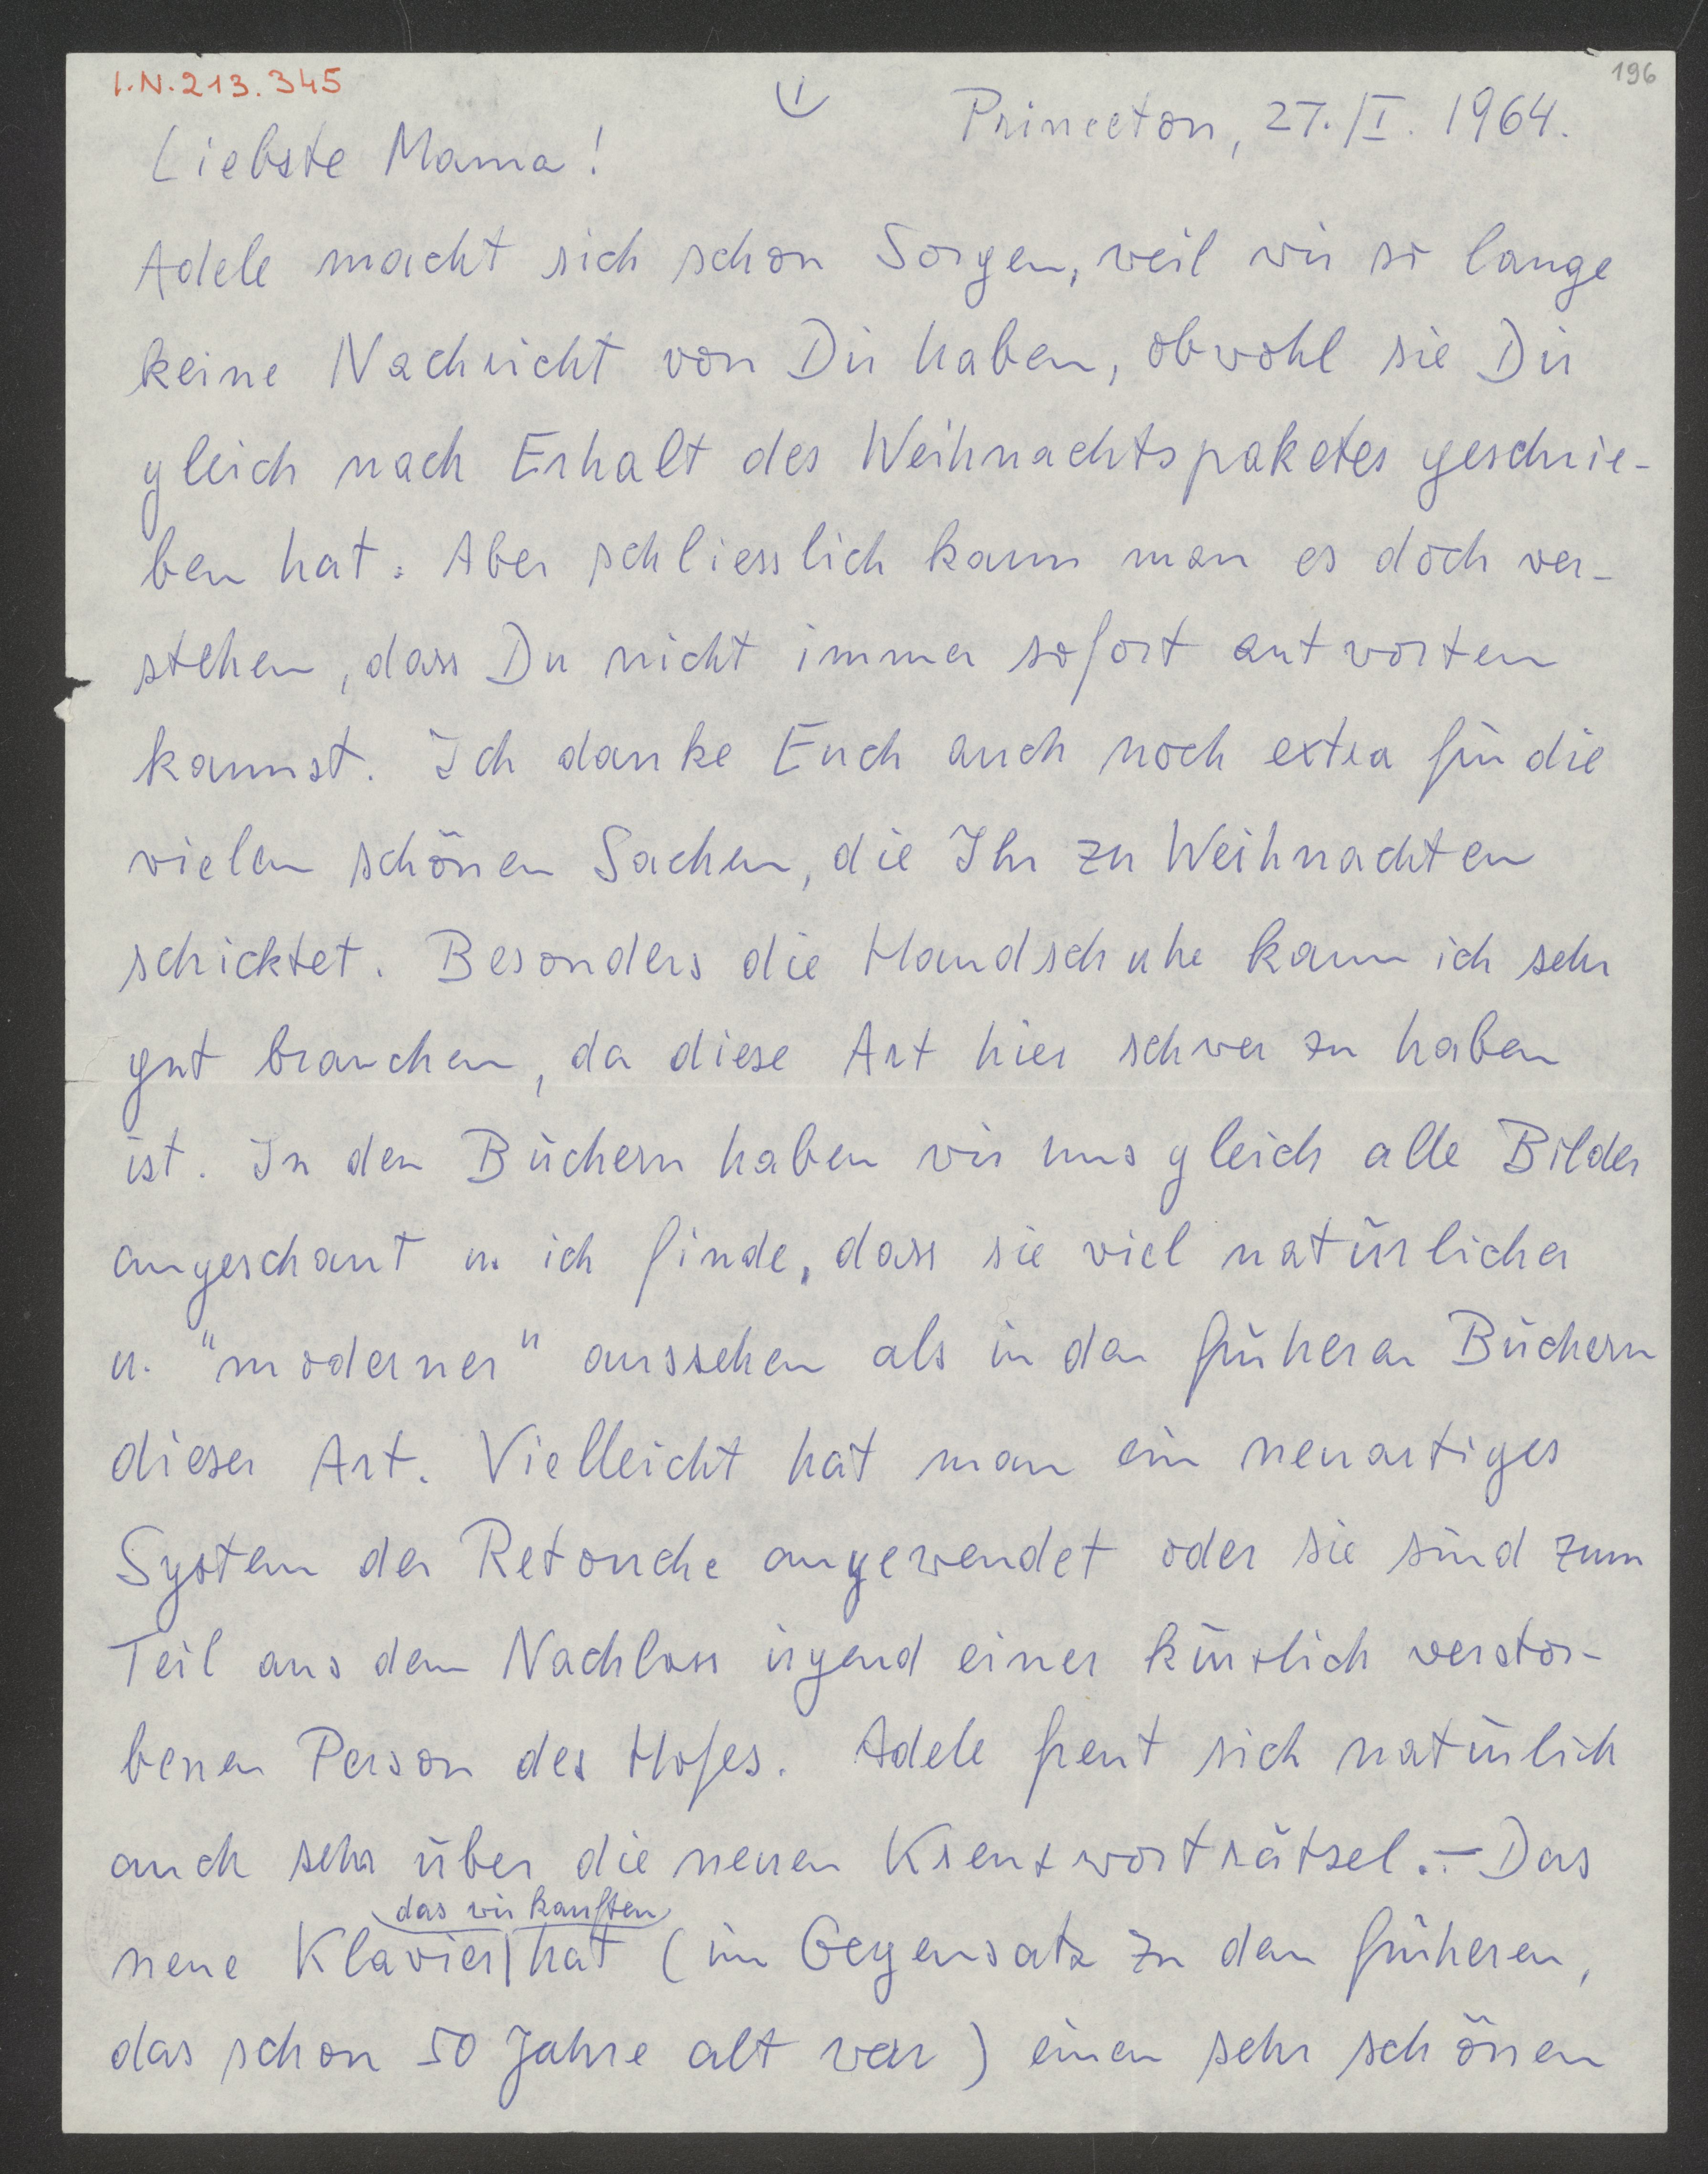 I.N. 213.345
196
1
Princeton, 27./I. 1964.
Liebste Mama!
Adele macht sich schon Sorgen, weil wir so lange
keine Nachricht von Dir haben, obwohl sie Dir
gleich nach Erhalt des Weihnachtspaketes geschrie-
ben hat. Aber schliesslich kann man es doch ver-
stehen, dass Du nicht immer sofort antworten
kannst. Ich danke Euch auch noch extra für die
vielen schönen Sachen, die Ihr zu Weihnachten
schicktet. Besonders die Handschuhe kann ich sehr
gut brauchen, da diese Art hier schwer zu haben
ist. In den Büchern haben wir uns gleich alle Bilder
angeschaut u. ich finde, dass sie viel natürlicher
u. "moderner" aussehen als in den früheren Büchern
dieser Art. Vielleicht hat man ein neuartiges
System der Retouche angewendet oder sie sind zum
Teil aus dem Nachlass irgend einer kürzlich verstor-
benen Person des Hofes. Adele freut sich natürlich
auch sehr über die neuen Kreuzworträtsel. – Das
das wir kauften
neue Klavier hat (im Gegensatz zu dem früheren,
das schon 50 Jahre alt war) einen sehr schönen